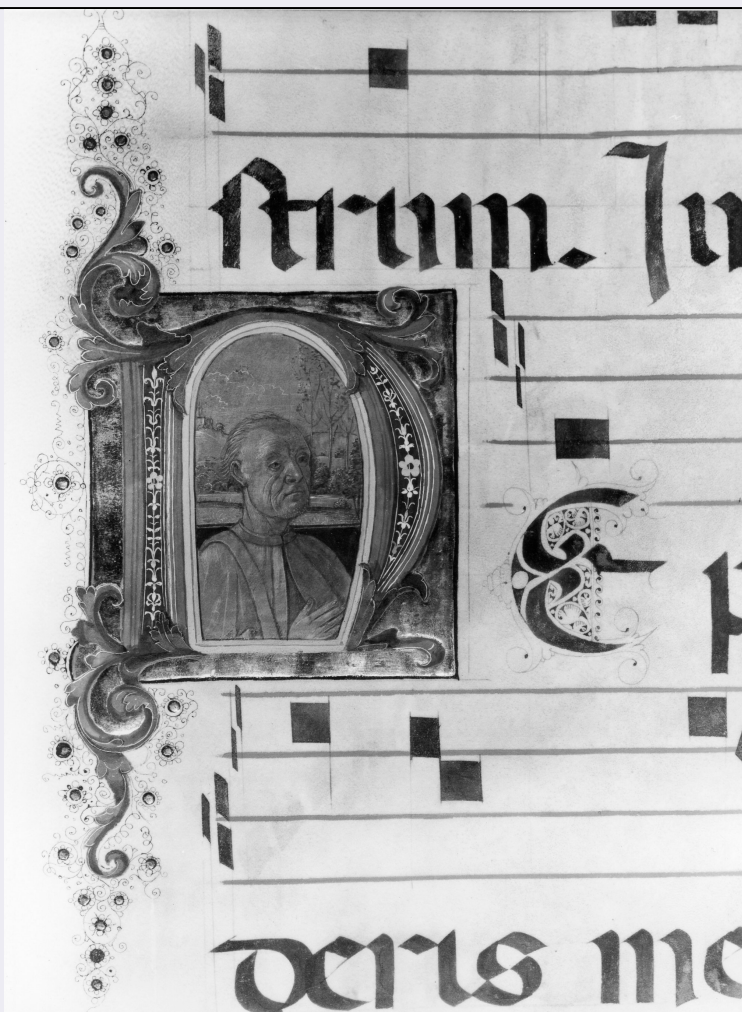 ſtrum. Iu
DEp
deris me